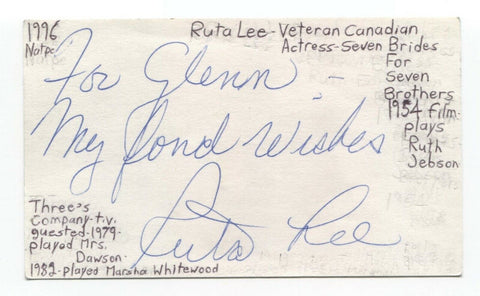 1996
Notpc
Ruta Lee - Veteran Canadian
Actress-Seven Brides
For
Seven
Brothers
1954 film-
plays
Ruth
Jebson
For Glenn -
My fond wishes
Ruta Lee
Three's
Company-t.v.
guested-1979-
played Mrs.
Dawson-
1982-played Marsha Whitewood